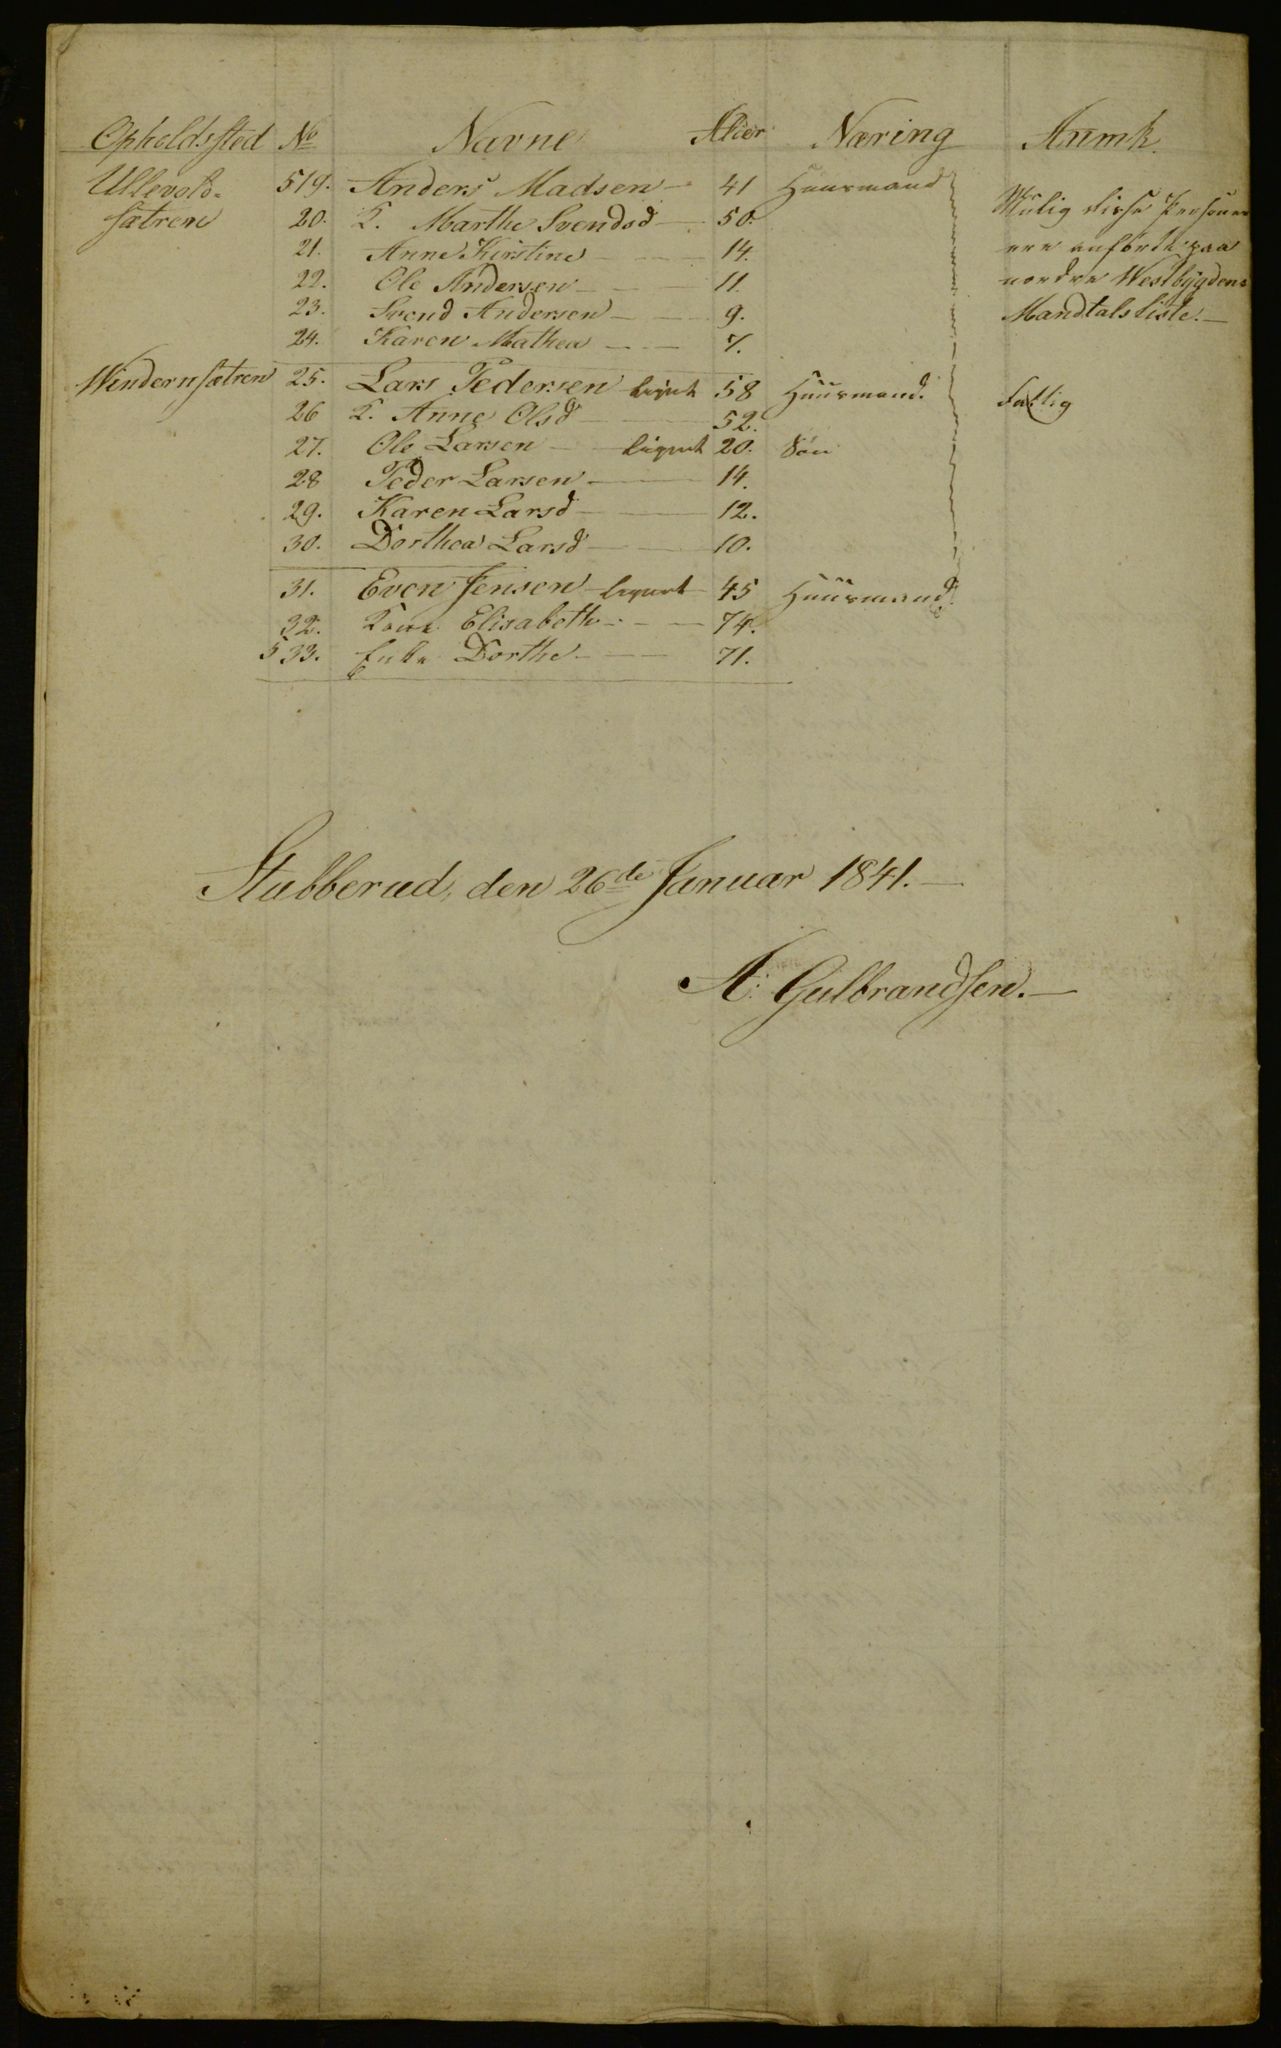 Opholdssted No Navne Alder Næring Anmk.
Ullevold- 519. Anders Madsen 41 Huusmand
sætren 20. K. Marthe Svendsd 50. Mulig disse Personer
21. Anne Kirstine 14. ere anførte paa
22. Ole Andersen 11. nordre Westbygdens
23. Svend Andersen 9. Mandtalsliste.
24. Karen Mathea 7.
Windernsætren 25. Lars Pedersen lignet 58 Huusmand. fattig
26 K. Anne Olsd 52.
27. Ole Larsen lignet 20. Søn
28 Peder Larsen 14.
29. Karen Larsd 12.
30. Dorthea Larsd 10.
31. Even Jensen lignet 45 Huusmand.
32. Kone Elisabeth 74.
533. Enke Dorthe 71.
Stubberud, den 26de Januar 1841.
A: Gulbrandsen.